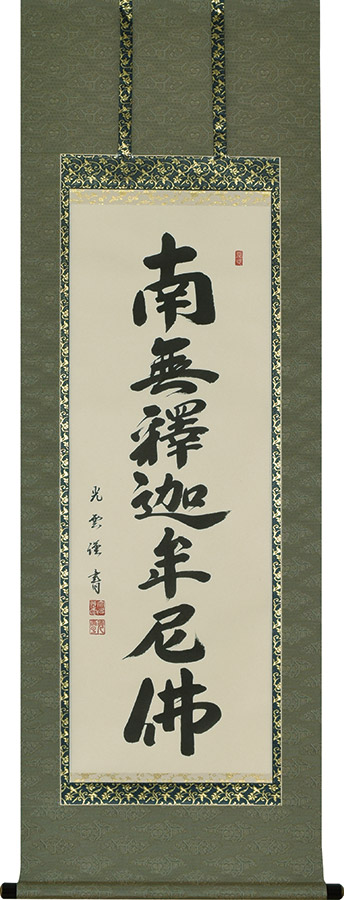 南無釋迦牟尼佛
光雲謹書